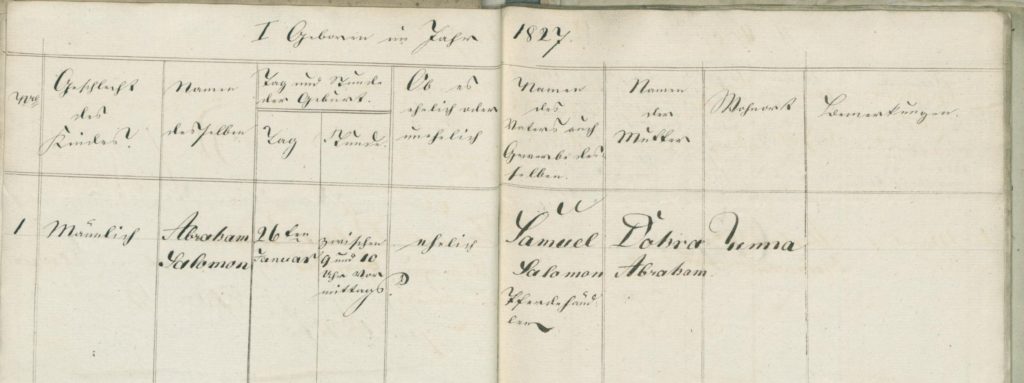 I Geboren im Jahr 1827.
Nro
Geschlecht
des
Kindes.
Namen
desselben
Tag und Stunde
der Geburt.
Tag
Stunde.
Ob es
ehelich oder
unehelich
Namen
des
Vaters auch
Gewerbe des-
selben.
Namen
der
Mutter
Wohnort
Bemerkungen.
1
Männlich
Abraham
Salomon
26ten
Januar
zwischen
9 und 10
Uhr Vor
mittags
ehelich
Samuel
Salomon
Pferdehänd
ler
Abraham.
Unna